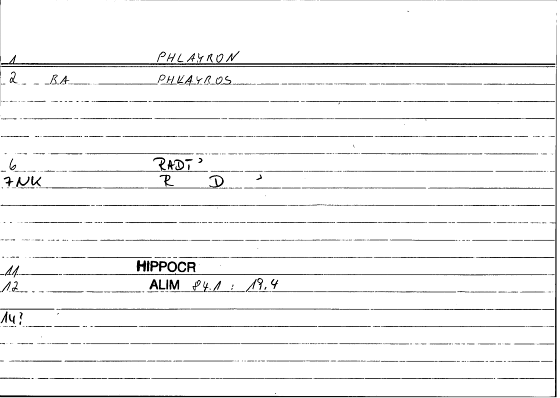 1 PHLAYRON
2 RA PHLAYROS
6 RADT'
7NK R D '
11 HIPPOCR
12 ALIM 84.1 : 19,4
14?